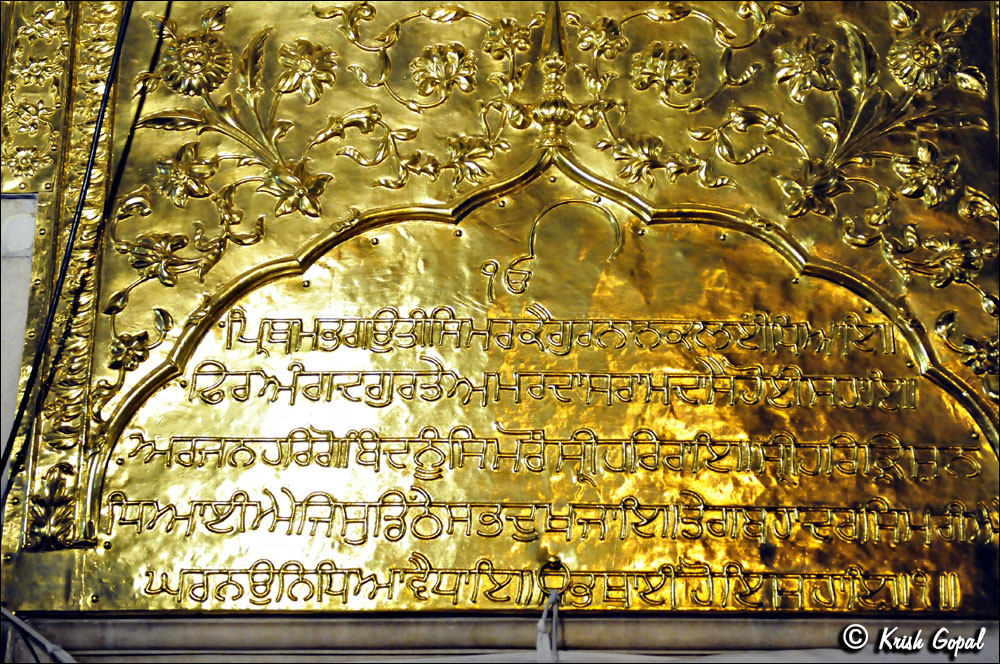 ੴ
ਪ੍ਰਿਥਮ ਭਗਉਤੀ ਸਿਮਰ ਕੈ ਗੁਰ ਨਾਨਕ ਲਈਂ ਧਿਆਇ॥
ਫਿਰ ਅੰਗਦ ਗੁਰ ਤੇ ਅਮਰਦਾਸ ਰਾਮਦਾਸੈ ਹੋਈ ਸਹਾਇ॥
ਅਰਜਨ ਹਰਿਗੋਬਿੰਦ ਨੂੰ ਸਿਮਰੌ ਸ੍ਰੀ ਹਰਿਰਾਇ॥ ਸ੍ਰੀ ਹਰਿ ਕ੍ਰਿਸ਼ਨ
ਧਿਆਈਐ ਜਿਸੁ ਡਿੱਠੇ ਸਭ ਦੁਖ ਜਾਇ॥ ਤੇਗ ਬਹਾਦਰ ਸਿਮਰੀਐ
ਘਰ ਨਉ ਨਿਧਿ ਆਵੈ ਧਾਇ॥ ਸਭ ਥਾਈਂ ਹੋਇ ਸਹਾਇ॥੧॥
© Krish Gopal